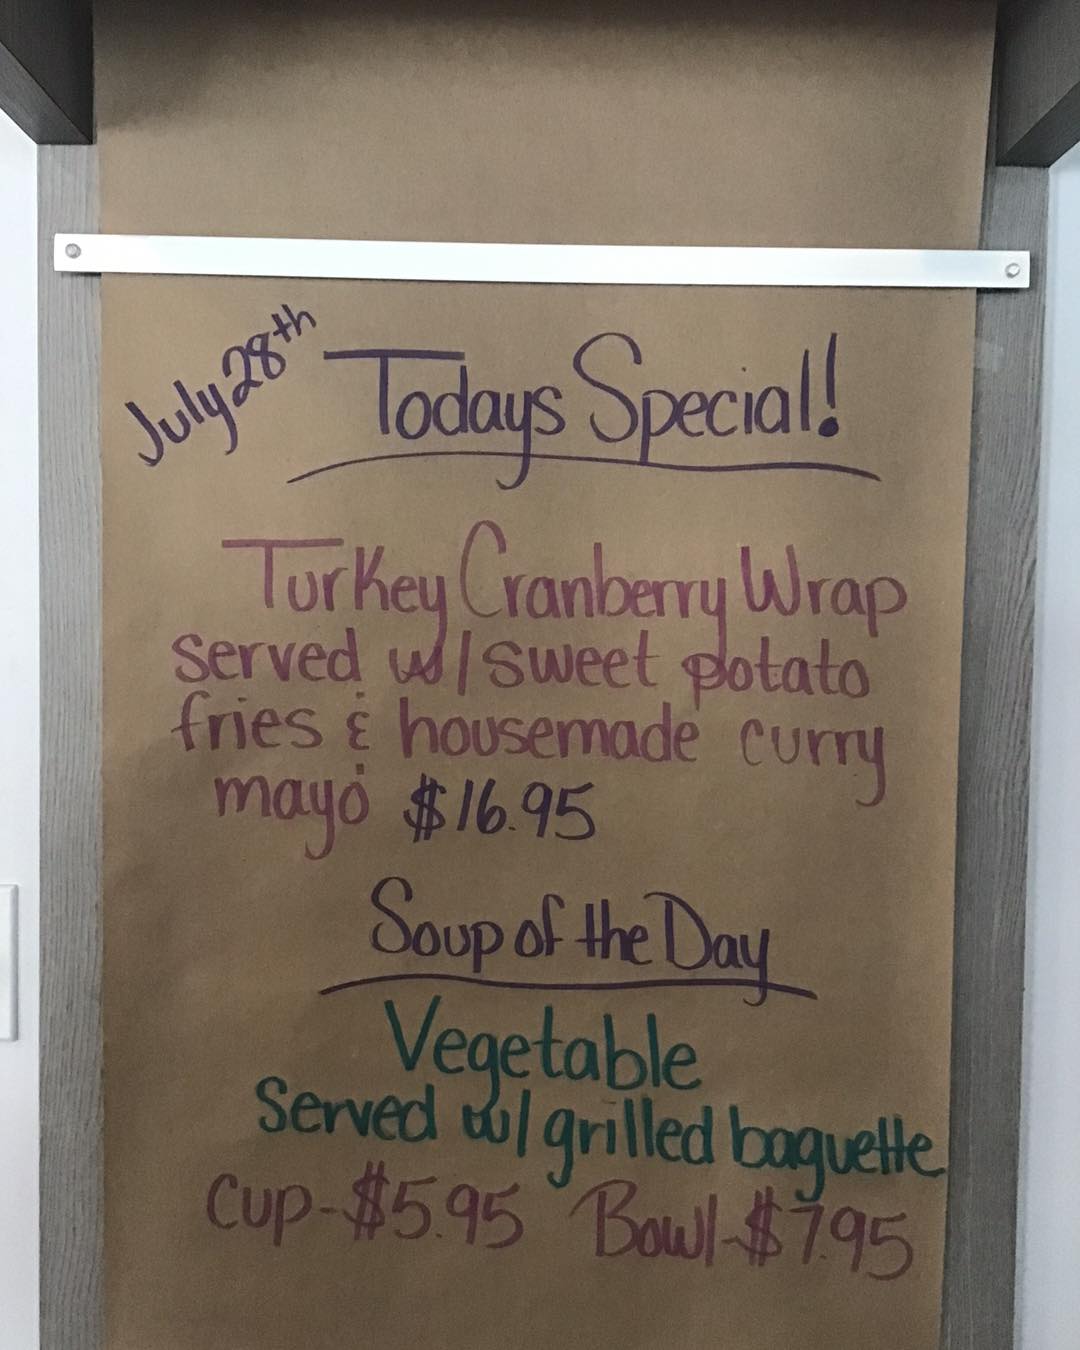 July 28th
Todays Special!
Turkey Cranberry Wrap
served w/ sweet potato
fries & housemade curry
mayo $16.95
Soup of the Day
Vegetable
Served w/ grilled baguette
Cup-$5.95 Bowl-$7.95